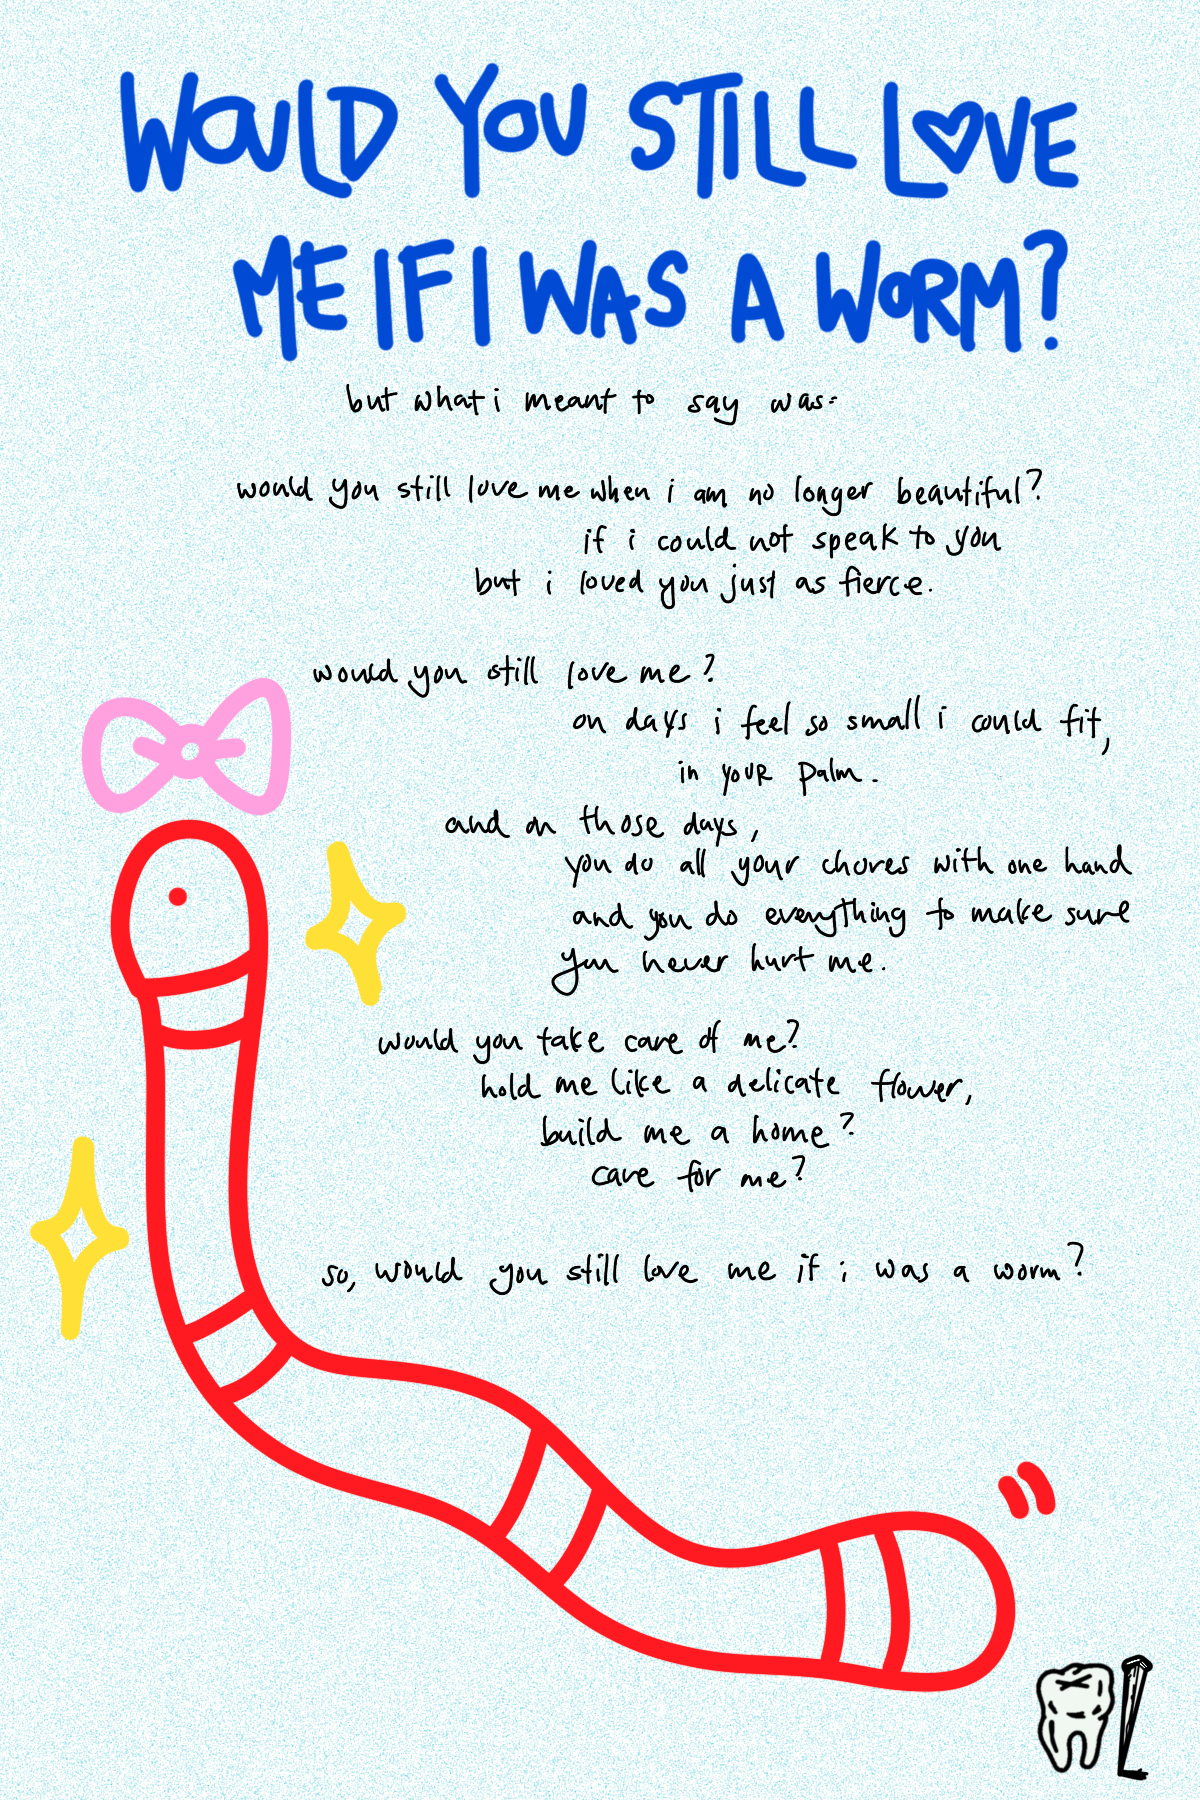 WOULD YOU STILL LOVE
ME IF I WAS A WORM?
but what i meant to say was:
would you still love me when i am no longer beautiful?
if i could not speak to you
but i loved you just as fierce.
would you still love me?
on days i feel so small i could fit,
in your palm.
and on those days,
you do all your chores with one hand
and you do everything to make sure
you never hurt me.
would you take care of me?
hold me like a delicate flower,
build me a home?
care for me?
so, would you still love me if i was a worm?